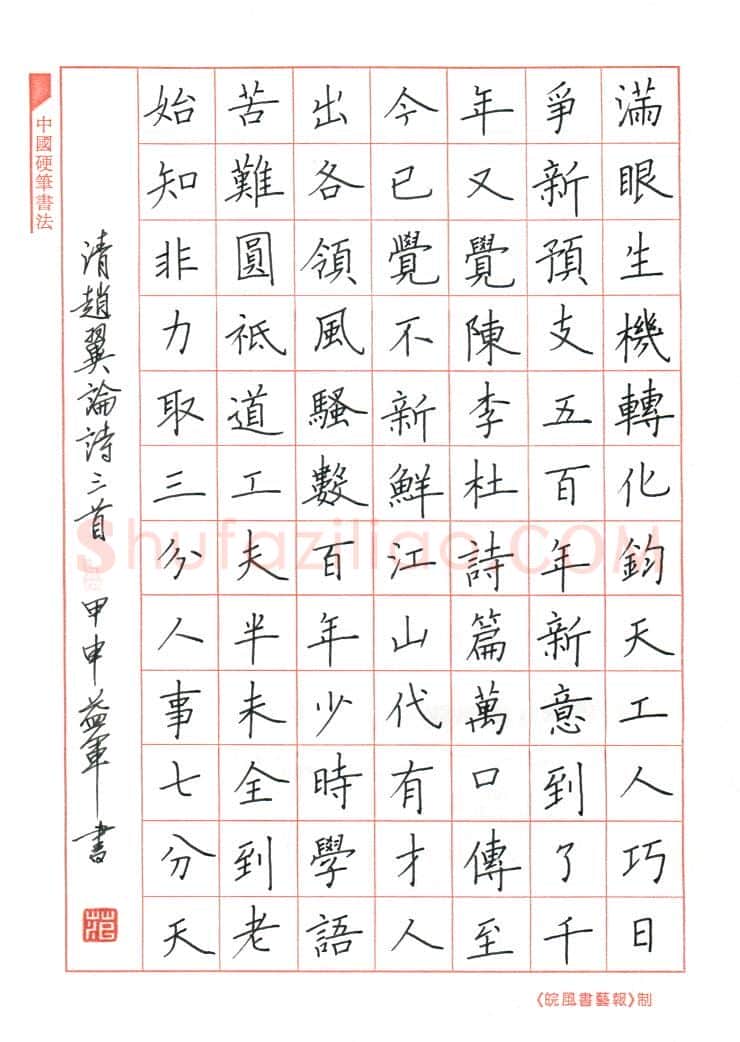 中國硬筆書法
滿眼生機轉化鈞天工人巧日
爭新預支五百年新意到了千
年又覺陳李杜詩篇萬口傳至
今已覺不新鮮江山代有才人
出各領風騷數百年少時學語
苦難圓祗道工夫半未全到老
始知非力取三分人事七分天
清趙翼論詩三首 甲申益軍書
《皖風書藝報》制
Shufaziliao.COM